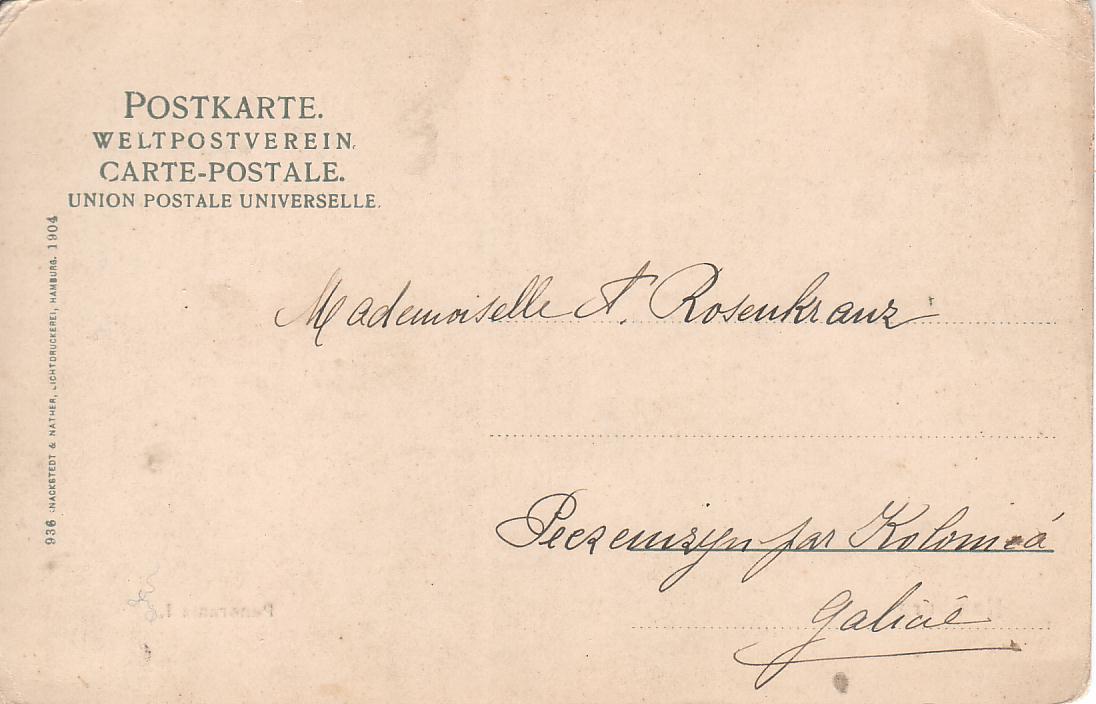 POSTKARTE.
WELTPOSTVEREIN.
CARTE-POSTALE.
UNION POSTALE UNIVERSELLE.
936 KNACKSTEDT & NÄTHER, LICHTDRUCKEREI, HAMBURG. 1904
Mademoiselle A. Rosenkranz
Peczenizyn par Kolomea
Galicie